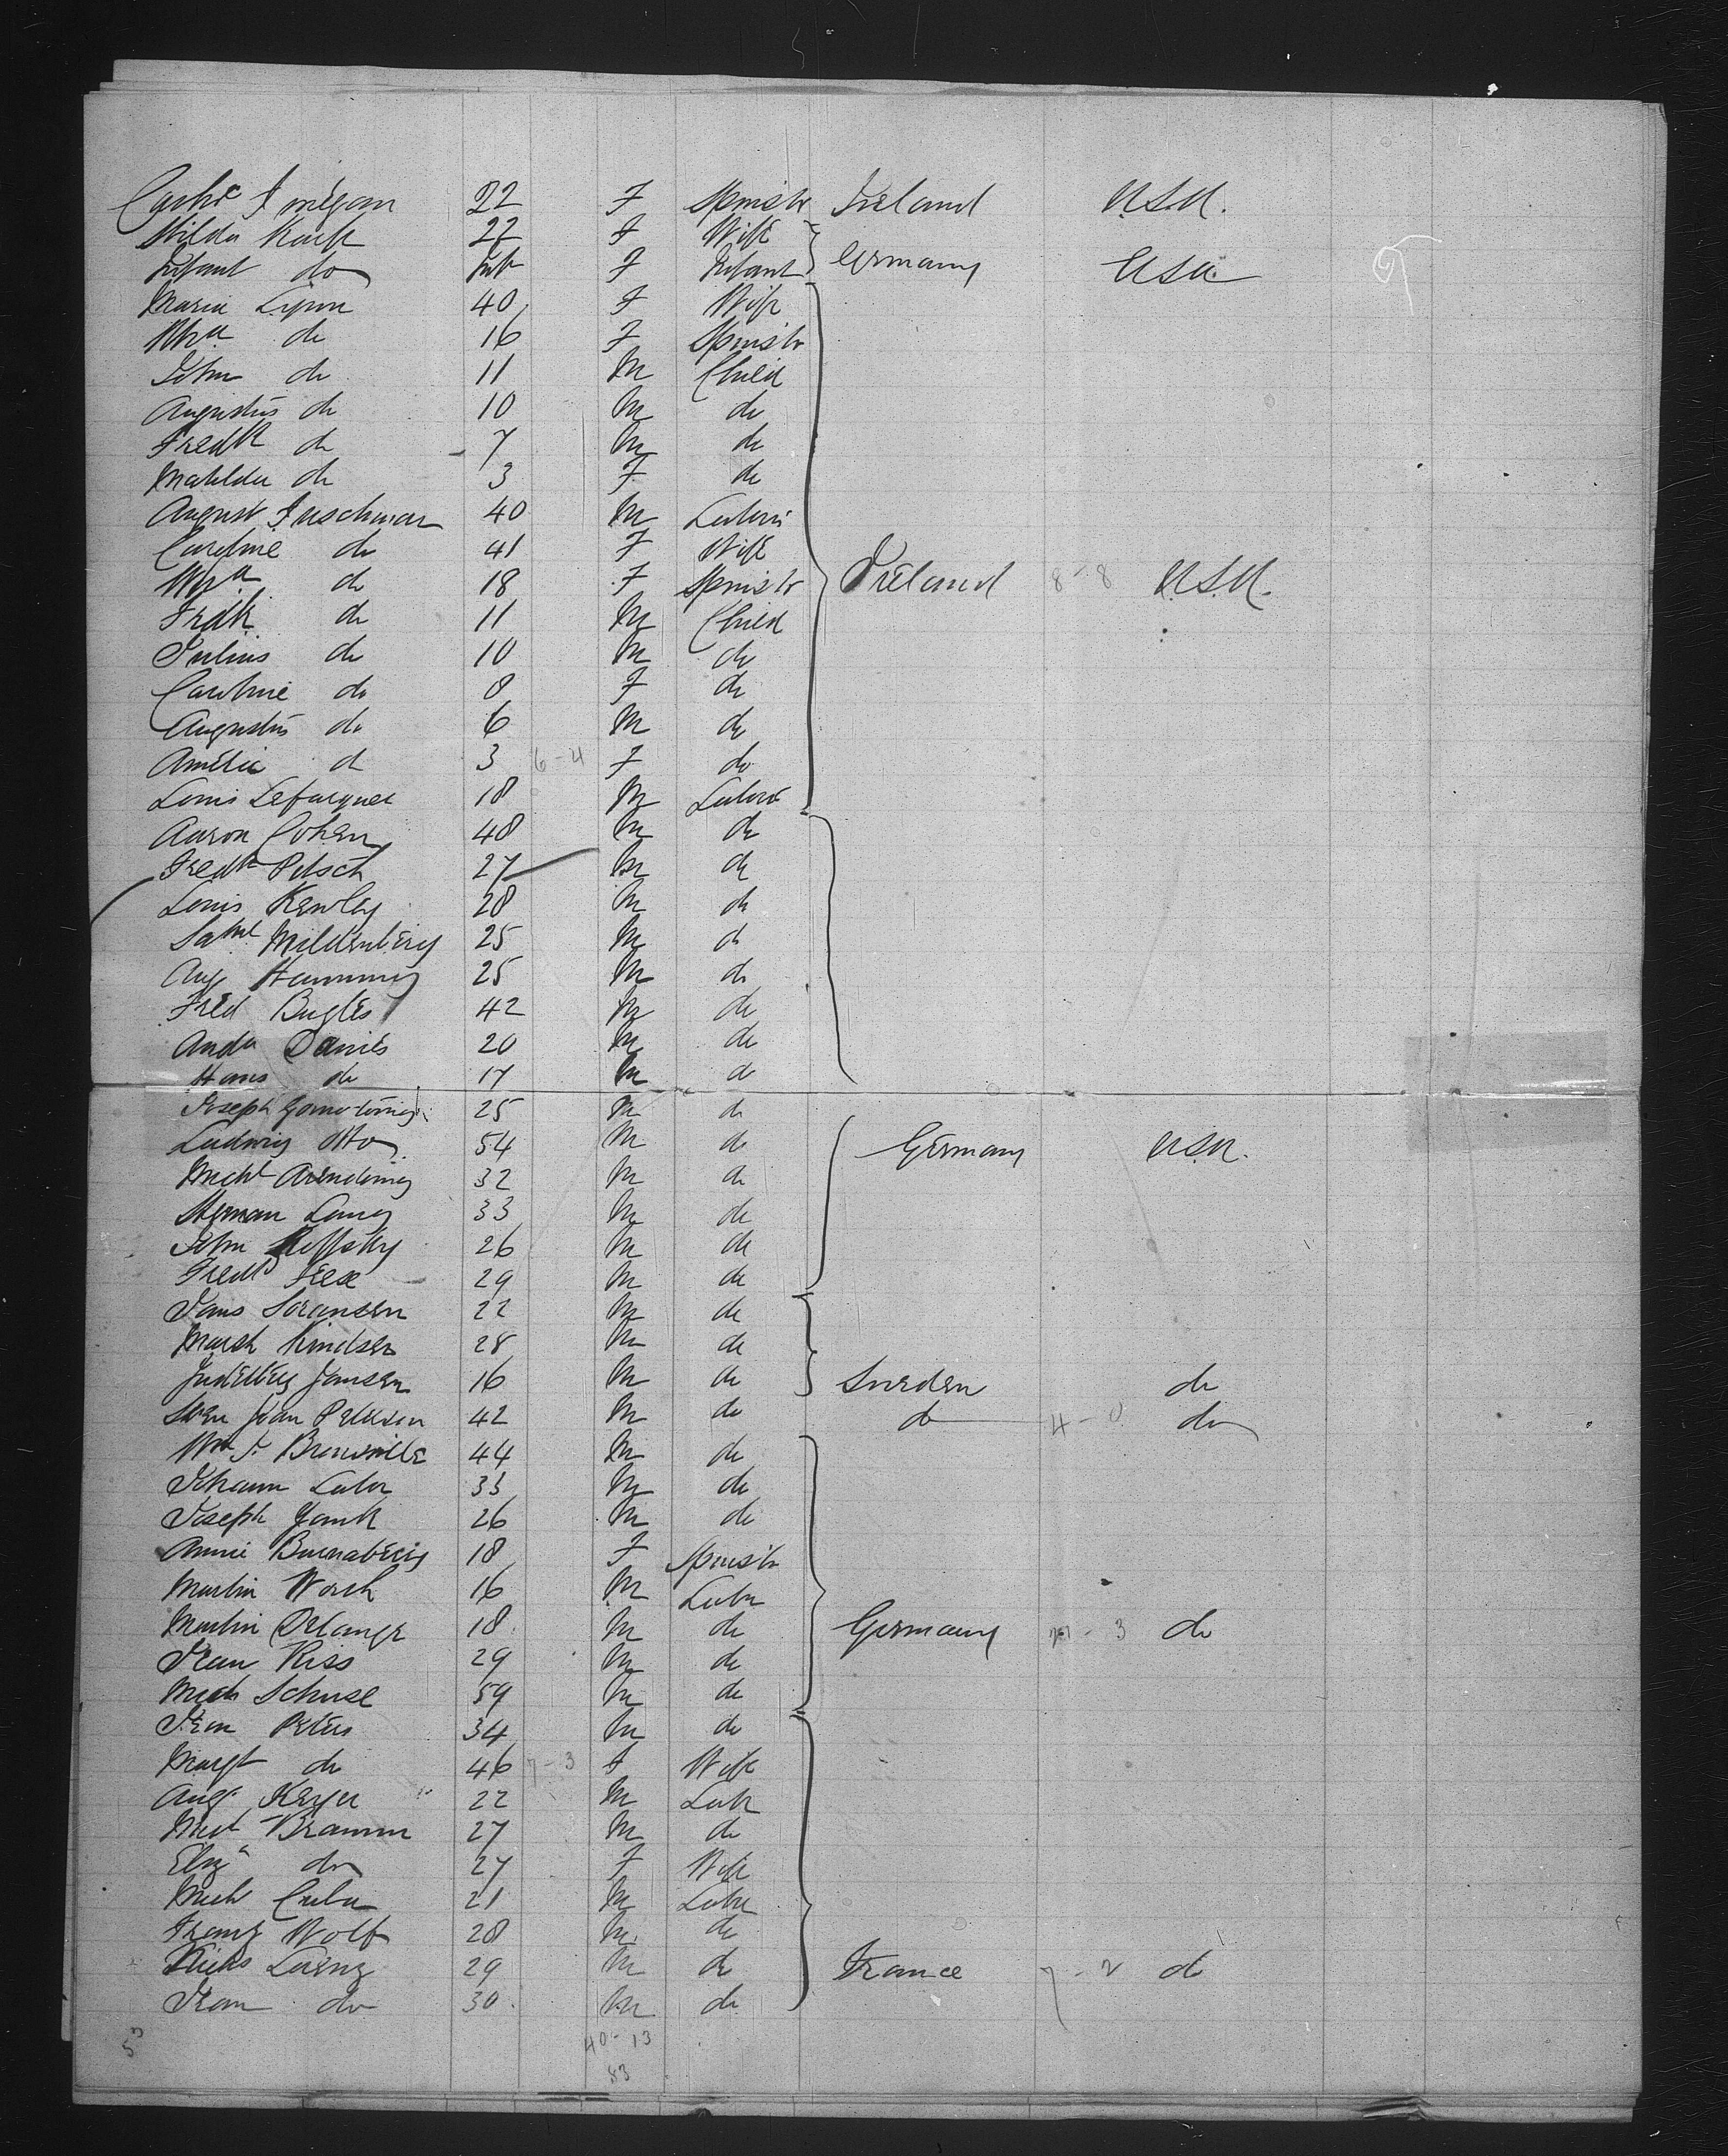 Cathe Finegan 22 F Spinstr Ireland U.S.A.
Hilda Kark 22 F Wife
Infant do Inft F Infant Germany USA
Maria Lynn 40 F Wife
Wha do 16 F Spinstr
John do 11 M Child
Augustus do 10 M do
Fredk do 7 M do
Matilda do 3 F do
August Fuschman 40 M Labour
Caroline do 41 F Wife
Wha do 18 F Spinstr Ireland 8-8 U.S.A.
Fredk do 11 M Child
Julius do 10 M do
Caroline do 8 F do
Augustus do 6 M do
Amelia do 3 6-4 F do
Louis Lefarquer 18 M Labour
Aaron Cohen 48 M do
Fredk Petsch 27 M do
Louis Kewley 28 M do
Saml Mildenberg 25 M do
Aug Hamming 25 M do
Fred Bugles 42 M do
Andw Daniels 20 M do
Hans do 17 M do
Joseph 25 M do
Ludwig Otto 54 M do Germany U.S.A.
Michl 32 M do
Herman Lang 33 M do
John 26 M do
Fredk Feese 29 M do
Jans Soransen 22 M do
Marsh Kindsen 28 M do
Jansen 16 M do Sweden do
Sven Joan Peterson 42 M do do 4-0 do
Wm J. Brunville 44 M do
Johann Labor 33 M do
Joseph Yank 26 M do
Annie 18 F Spinstr
Martin Worsh 16 M Labr
Martin Delange 18 M do Germany 3 do
Jean Kiss 29 M do
Mich Schuse 59 M do
Jean Peters 34 M do
Margt do 46 7-3 F Wife
Aug. Keryer 22 M Labr
Michl Bramm 27 M do
Eliza do 27 F Wife
Mich Cuba 21 M Labr
Franz Wolf 28 M do
Nichs Lorenz 29 M do France 7-2 do
Jean do 30 M do
53 40-13
53